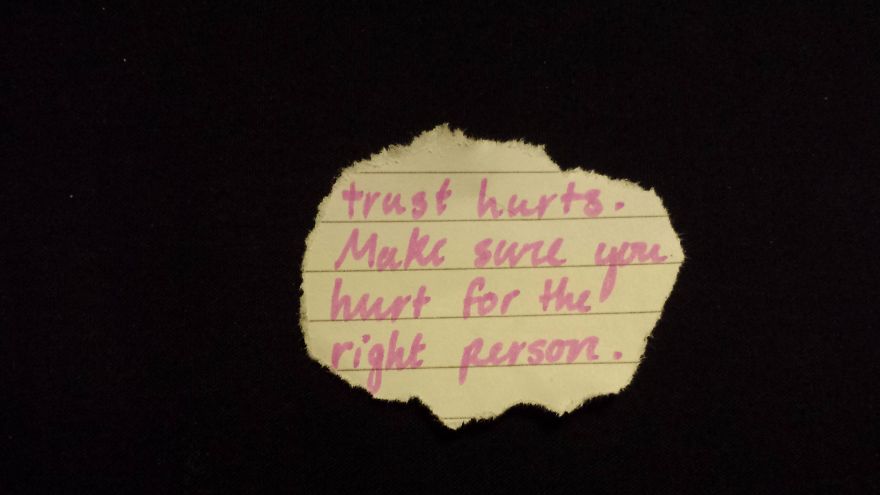 trust hurts.
Make sure you
hurt for the
right person.